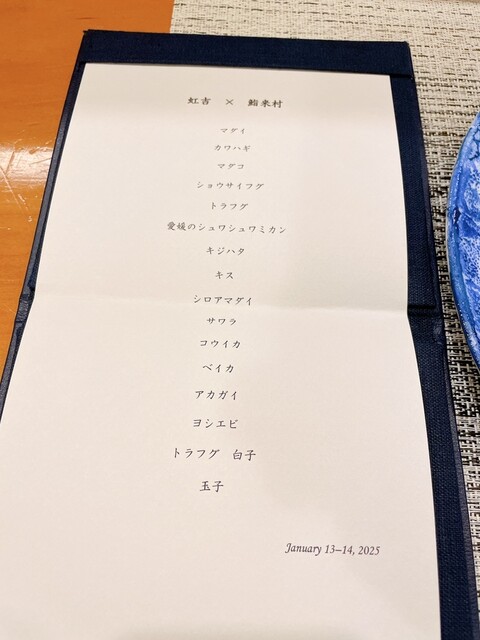 虹吉 × 鮨来村
マダイ
カワハギ
マダコ
ショウサイフグ
トラフグ
愛媛のシュワシュワミカン
キジハタ
キス
シロアマダイ
サワラ
コウイカ
ベイカ
アカガイ
ヨシエビ
トラフグ 白子
玉子
January 13–14, 2025